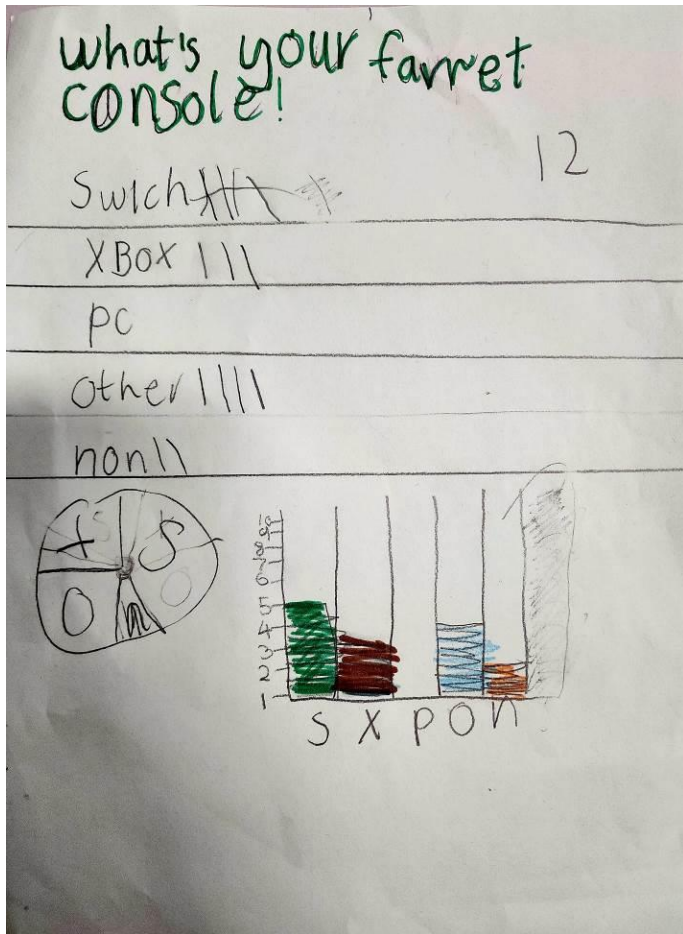 what's your farret
console!
12
Swich
XBox |||
pc
other ||||
non ||
x S
O n
10
9
8
7
6
5
4
3
2
1
S X P O n